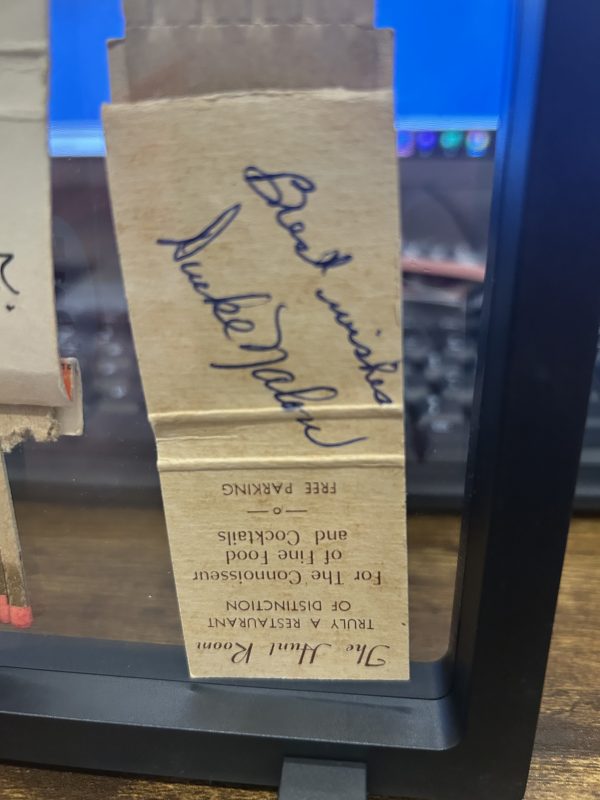 Best wishes
Duke Nalon
The Hunt Room
TRULY A RESTAURANT
OF DISTINCTION
For The Connoisseur
of Fine Food
and Cocktails
FREE PARKING